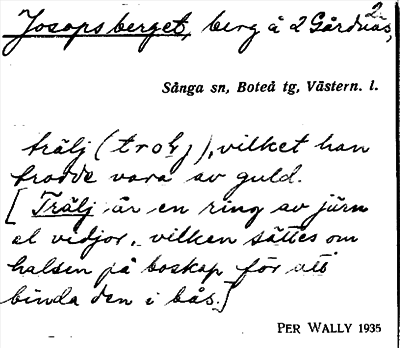 Josopsberget, berg å 2 Gårdnäs,
2
Sånga sn, Boteå tg, Västern. l.
trälj (troḷj), vilket han
trodde vara av guld.
[Trälj är en ring av järn
el vidjor, vilken sättes om
halsen på boskap för att
binda den i bås.]
PER WALLY 1935